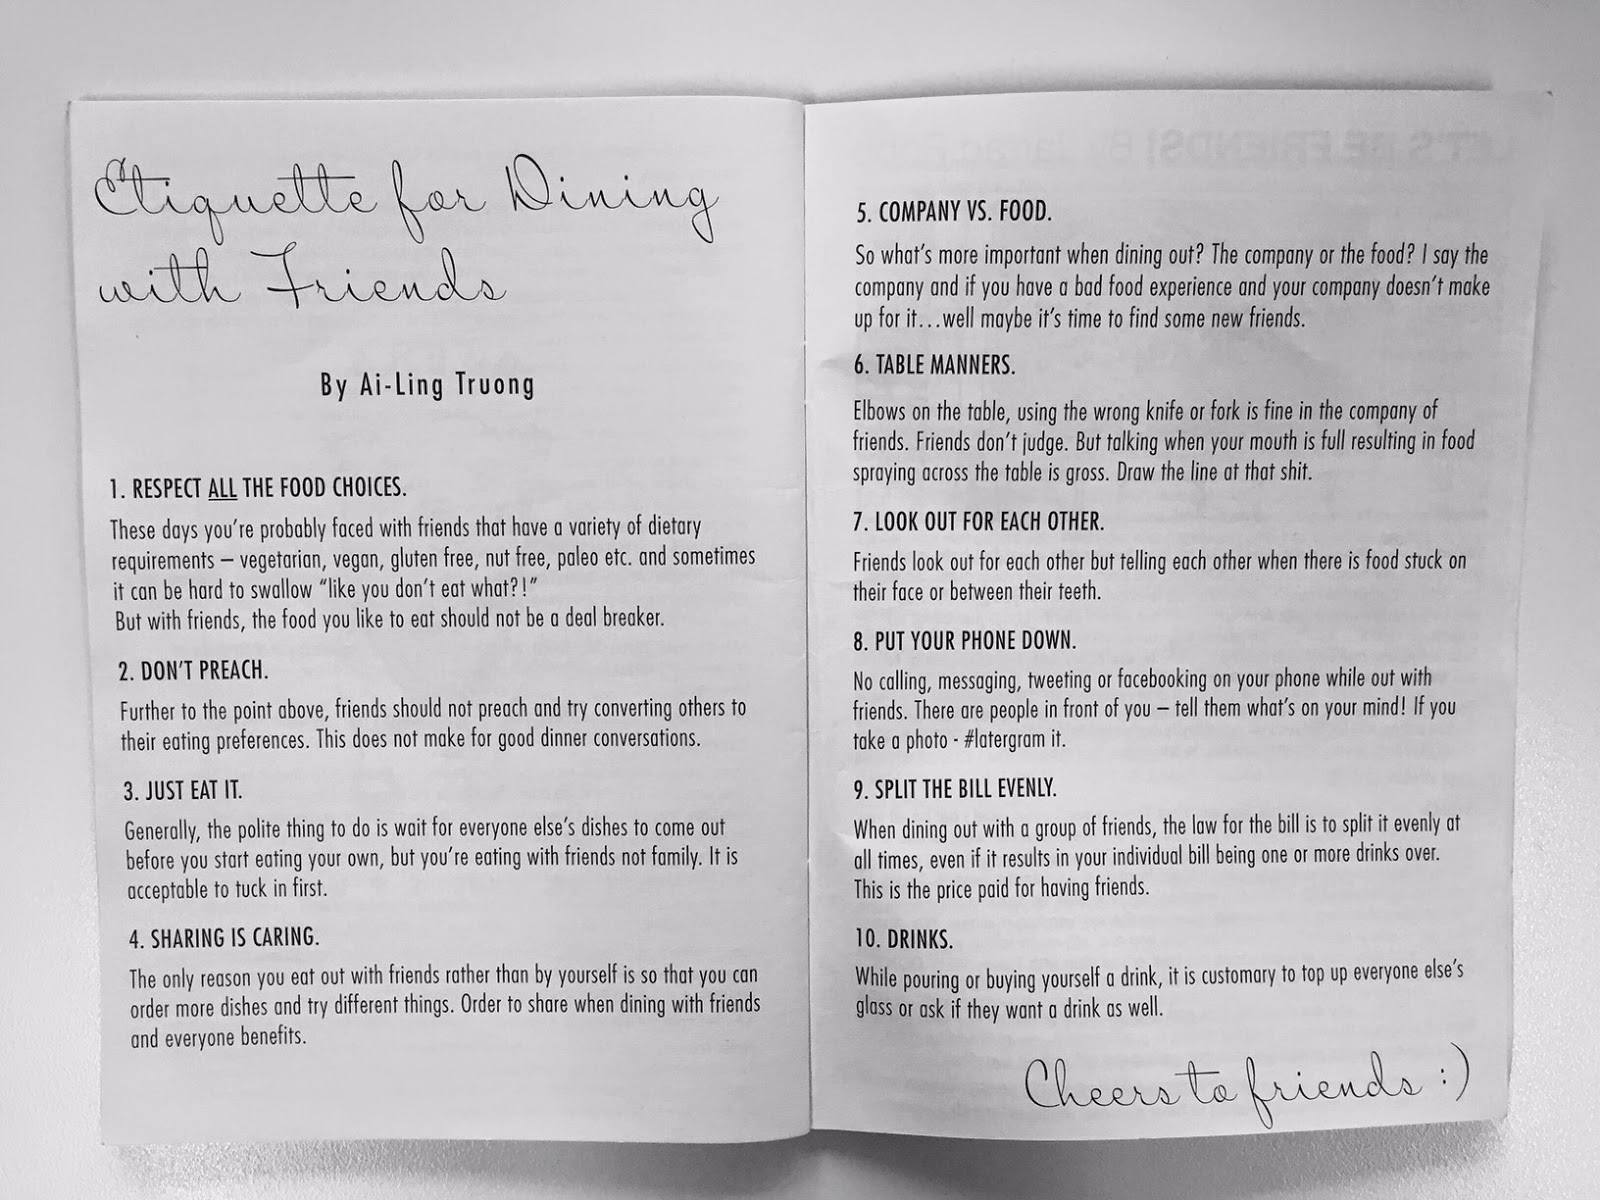 Etiquette for Dining
with Friends
By Ai-Ling Truong
1. RESPECT ALL THE FOOD CHOICES.
These days you're probably faced with friends that have a variety of dietary
requirements – vegetarian, vegan, gluten free, nut free, paleo etc. and sometimes
it can be hard to swallow "like you don't eat what?!"
But with friends, the food you like to eat should not be a deal breaker.
2. DON'T PREACH.
Further to the point above, friends should not preach and try converting others to
their eating preferences. This does not make for good dinner conversations.
3. JUST EAT IT.
Generally, the polite thing to do is wait for everyone else's dishes to come out
before you start eating your own, but you're eating with friends not family. It is
acceptable to tuck in first.
4. SHARING IS CARING.
The only reason you eat out with friends rather than by yourself is so that you can
order more dishes and try different things. Order to share when dining with friends
and everyone benefits.
5. COMPANY VS. FOOD.
So what's more important when dining out? The company or the food? I say the
company and if you have a bad food experience and your company doesn't make
up for it...well maybe it's time to find some new friends.
6. TABLE MANNERS.
Elbows on the table, using the wrong knife or fork is fine in the company of
friends. Friends don't judge. But talking when your mouth is full resulting in food
spraying across the table is gross. Draw the line at that shit.
7. LOOK OUT FOR EACH OTHER.
Friends look out for each other but telling each other when there is food stuck on
their face or between their teeth.
8. PUT YOUR PHONE DOWN.
No calling, messaging, tweeting or facebooking on your phone while out with
friends. There are people in front of you – tell them what's on your mind! If you
take a photo - #latergram it.
9. SPLIT THE BILL EVENLY.
When dining out with a group of friends, the law for the bill is to split it evenly at
all times, even if it results in your individual bill being one or more drinks over.
This is the price paid for having friends.
10. DRINKS.
While pouring or buying yourself a drink, it is customary to top up everyone else's
glass or ask if they want a drink as well.
Cheers to friends :)